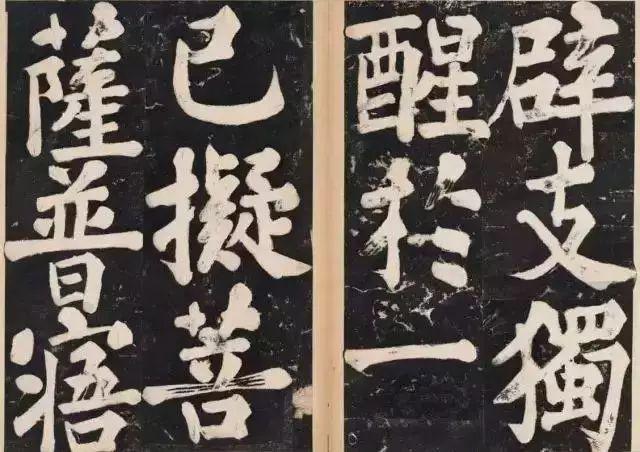 辟支獨
醒於一
已擬菩
薩普寤